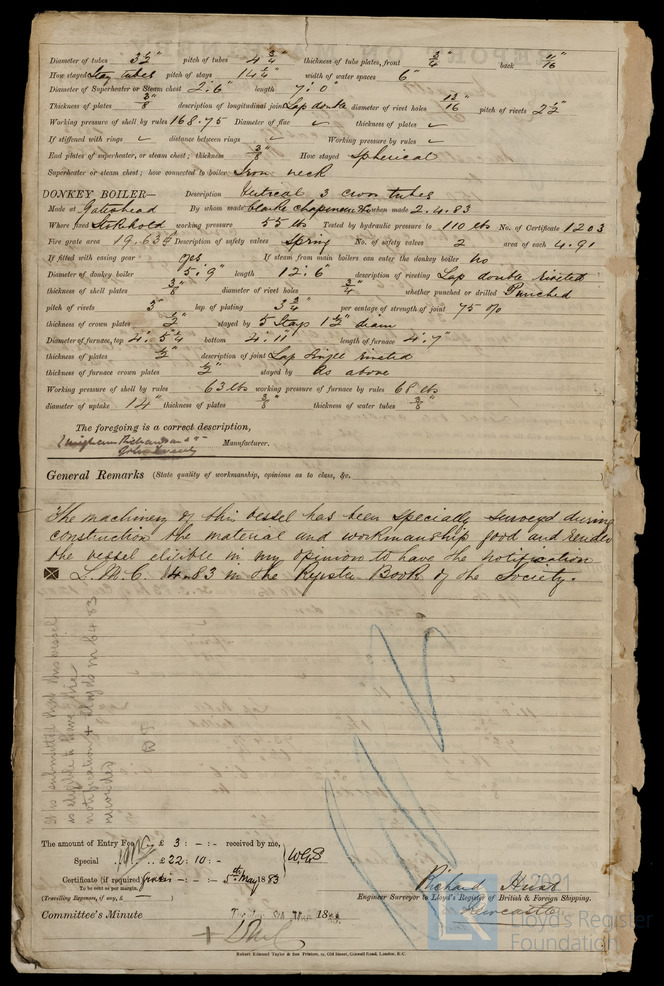 Diameter of tubes 3½" pitch of tubes 4¾" thickness of tube plates, front ¾" back
How stayed Stay tubes pitch of stays 14¼" width of water spaces 6"
Diameter of Superheater or Steam chest 2'.6" length 7'.0"
Thickness of plates ⅜" description of longitudinal joint Lap double diameter of rivet holes 13/16" pitch of rivets 2½"
Working pressure of shell by rules 168.75 Diameter of flue ✓ thickness of plates ✓
If stiffened with rings ✓ distance between rings ✓ Working pressure by rules ✓
End plates of superheater, or steam chest; thickness ⅜" How stayed Spherical
Superheater or steam chest; how connected to boiler Iron neck
DONKEY BOILER— Description Vertical 3 cross tubes
Made at Gateshead By whom made Clarke Chapman & Co when made 2.4.83
Where fixed Stokehold working pressure 55 lbs Tested by hydraulic pressure to 110 lbs No. of Certificate 1203
Fire grate area 19.63 Description of safety valves Spring No. of safety valves 2 area of each 4.91
If fitted with easing gear yes If steam from main boilers can enter the donkey boiler no
Diameter of donkey boiler 5'.9" length 12'.6" description of riveting Lap double riveted
thickness of shell plates ⅜" diameter of rivet holes ¾" whether punched or drilled Punched
pitch of rivets 3" lap of plating 3¾" per centage of strength of joint 75 %
thickness of crown plates ½" stayed by 5 Stays 1½" diam
Diameter of furnace, top 4'. 5¼" bottom 4'.11" length of furnace 4'.7"
thickness of plates ½" description of joint Lap Single riveted
thickness of furnace crown plates ½" stayed by As above
Working pressure of shell by rules 63 lbs working pressure of furnace by rules 68 lbs
diameter of uptake 14" thickness of plates ⅜" thickness of water tubes ⅜"
The foregoing is a correct description,
Wigham Richardson & Co Manufacturer.
General Remarks (State quality of workmanship, opinions as to class, &c.
The machinery of this vessel has been specially surveyed during
construction the material and workmanship good and render
the vessel elilible in my opinion to have the notification
L.M.C. 4.83 in the Register Book of the Society.
It is submitted that this vessel
is eligible to have the
notification + Lloyds M C 4 83
recorded
The amount of Entry Fee £ 3 : - : - received by me,
Special £22 : 10 : -
Certificate (if required) gratis - : - : 5th May 1883
To be sent as per margin.
(Travelling Expenses, if any, £ )
Richard Hirst
Engineer Surveyor to Lloyd's Register of British & Foreign Shipping.
Newcastle
Committee's Minute 18
Robert Edmund Taylor & Son Printers, 19, Old Street, Goswell Road, London, E.C.
© 2021
Lloyd's Register
Foundation